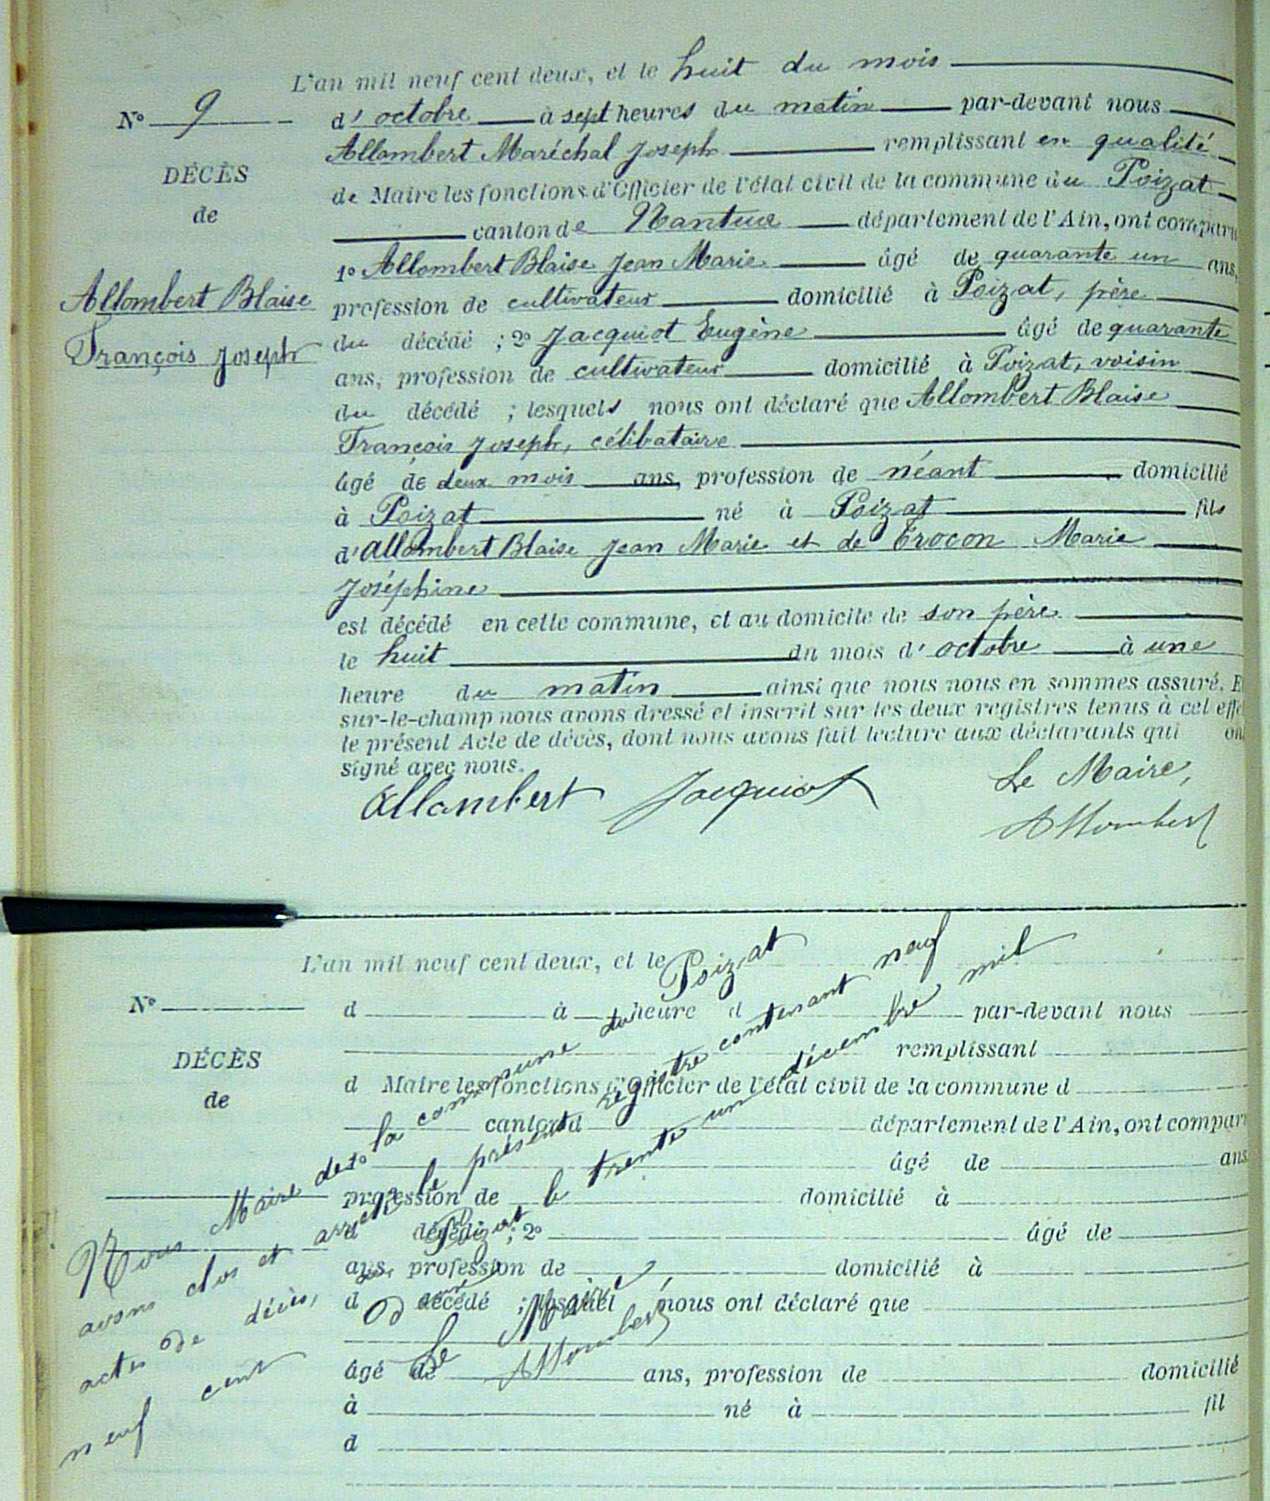 L'an mil neuf cent deux, et le huit du mois
N° 9
d'octobre à sept heures du matin par-devant nous
Allombert Maréchal Joseph remplissant en qualité
DÉCÈS
de Maire les fonctions d'Officier de l'état civil de la commune du Poizat
de
canton de Nantua département de l'Ain, ont comparu
1° Allombert Blaise Jean Marie âgé de quarante un ans,
Allombert Blaise
profession de cultivateur domicilié à Poizat, père
François Joseph
du décédé ; 2° Jacquiot Eugène âgé de quarante
ans, profession de cultivateur domicilié à Poizat, voisin
du décédé ; lesquels nous ont déclaré que Allombert Blaise
François Joseph, célibataire
âgé de deux mois ans, profession de néant domicilié
à Poizat né à Poizat fils
d'Allombert Blaise Jean Marie et de Crocon Marie
Joséphine
est décédé en cette commune, et au domicile de son père
le huit du mois d'octobre à une
heure du matin ainsi que nous nous en sommes assuré. E
sur-le-champ nous avons dressé et inscrit sur les deux registres tenus à cet effe
le présent Acte de décès, dont nous avons fait lecture aux déclarants qui on
signé avec nous.
Allombert Jacquiot Le Maire,
Allombert
L'an mil neuf cent deux, et le
N°
d à heure d par-devant nous
DÉCÈS
remplissant
de
d Maire les fonctions d'Officier de l'état civil de la commune d
canton d département de l'Ain, ont compar
1° âgé de ans
profession de domicilié à
d décédé ; 2° âgé de
ans, profession de domicilié à
d décédé ; lesquel nous ont déclaré que
âgé de ans, profession de domicilié
à né à fil
d
Nous Maire de la commune du Poizat
avons clos et arrêté le présent registre contenant neuf
actes de décès, Poizat le trente un décembre mil
neuf cent deux
Le Maire
Allombert